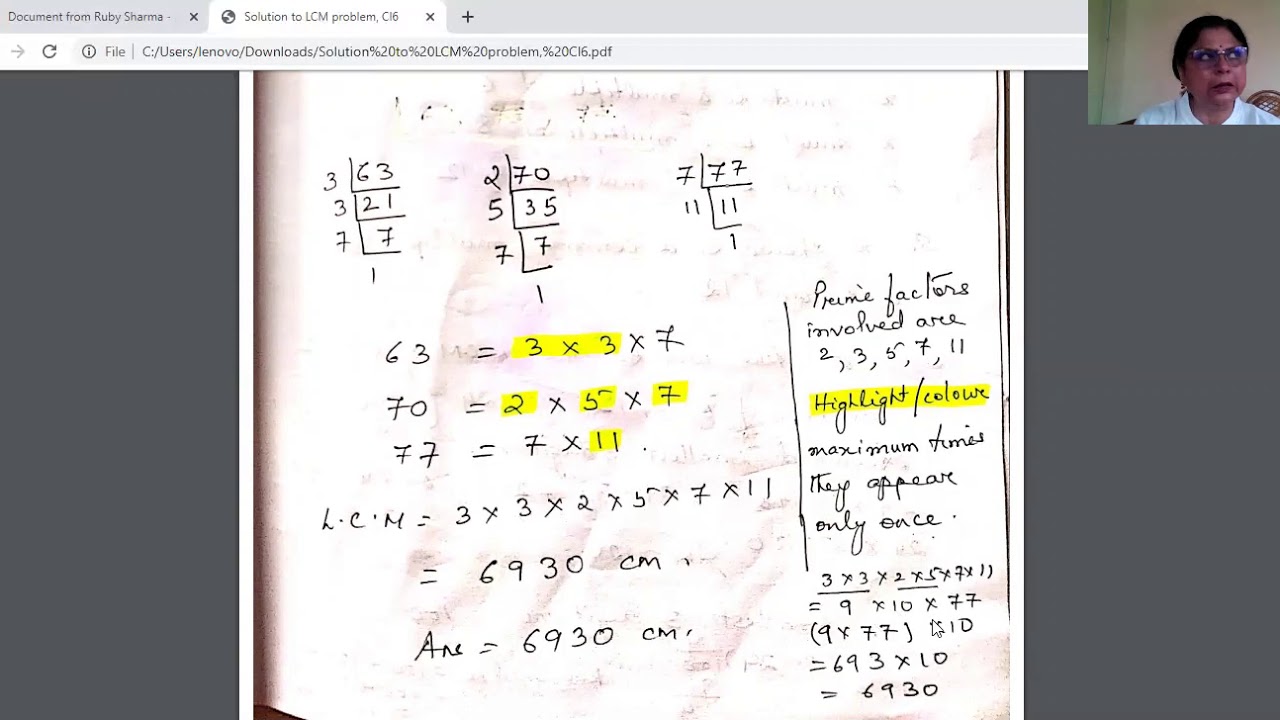 Document from Ruby Sharma -
Solution to LCM problem, Cl6
File
C:/Users/lenovo/Downloads/Solution%20to%20LCM%20problem,%20Cl6.pdf
3 63
3 21
7 7
1
2 70
5 35
7 7
1
7 77
11 11
1
63 = 3 × 3 × 7
70 = 2 × 5 × 7
77 = 7 × 11.
L.C.M = 3 × 3 × 2 × 5 × 7 × 11
= 6930 cm.
Ans = 6930 cm.
Prime factors
involved are
2, 3, 5, 7, 11
Highlight/colour
maximum times
they appear
only once.
3×3×2×5×7×11
= 9 ×10 × 77
(9×77) ×10
=693×10
= 6930